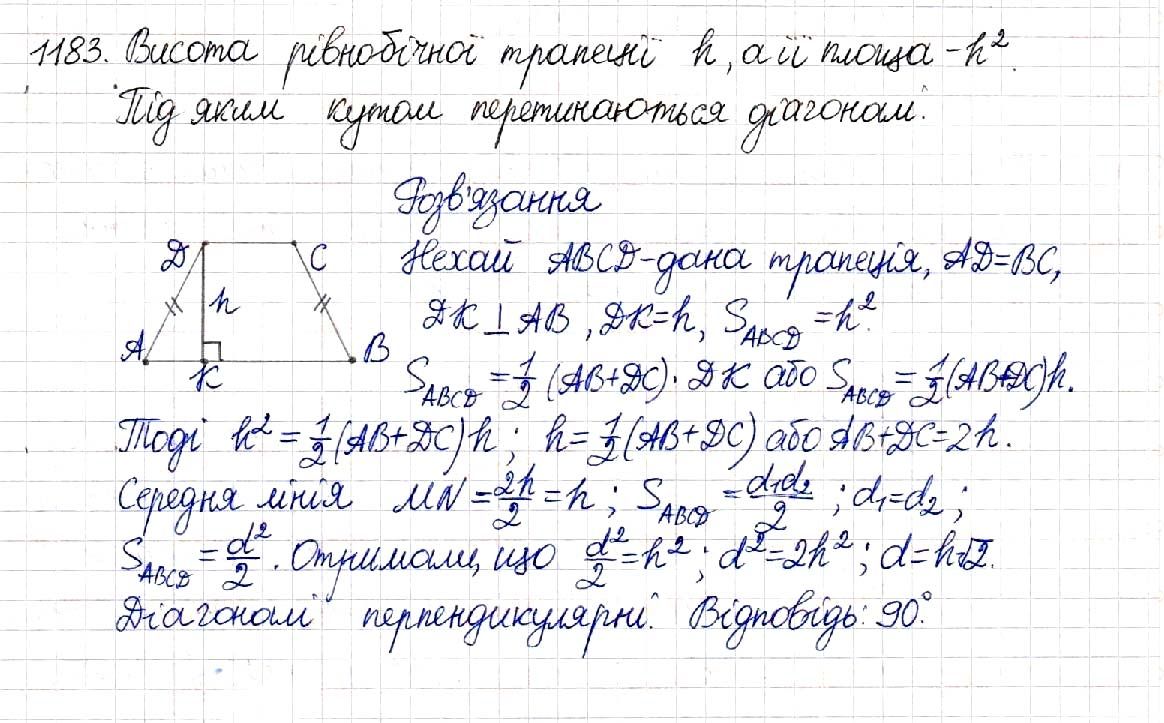 1183. Висота рівнобічної трапеції h, а її площа – h².
Під яким кутом перетинаються діагоналі.
Розв'язання
D C
h
A K B
Нехай ABCD – дана трапеція, AD=BC,
DK ⊥ AB, DK=h, S_ABCD = h².
S_ABCD = 1/2 (AB+DC) · DK або S_ABCD = 1/2 (AB+DC)h.
Тоді h² = 1/2 (AB+DC)h; h = 1/2 (AB+DC) або AB+DC=2h.
Середня лінія MN = 2h/2 = h; S_ABCD = d₁d₂/2; d₁=d₂;
S_ABCD = d²/2. Отримали, що d²/2 = h²; d²=2h²; d=h√2.
Діагоналі перпендикулярні. Відповідь: 90°